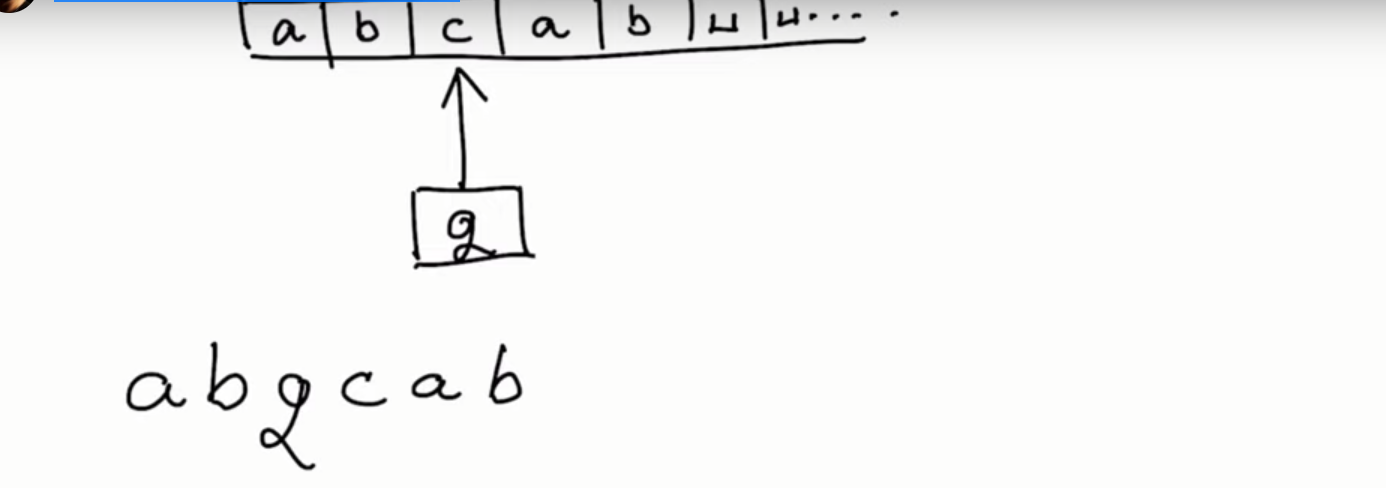 a b c a b ⊔ ⊔ ....
q
a b q c a b